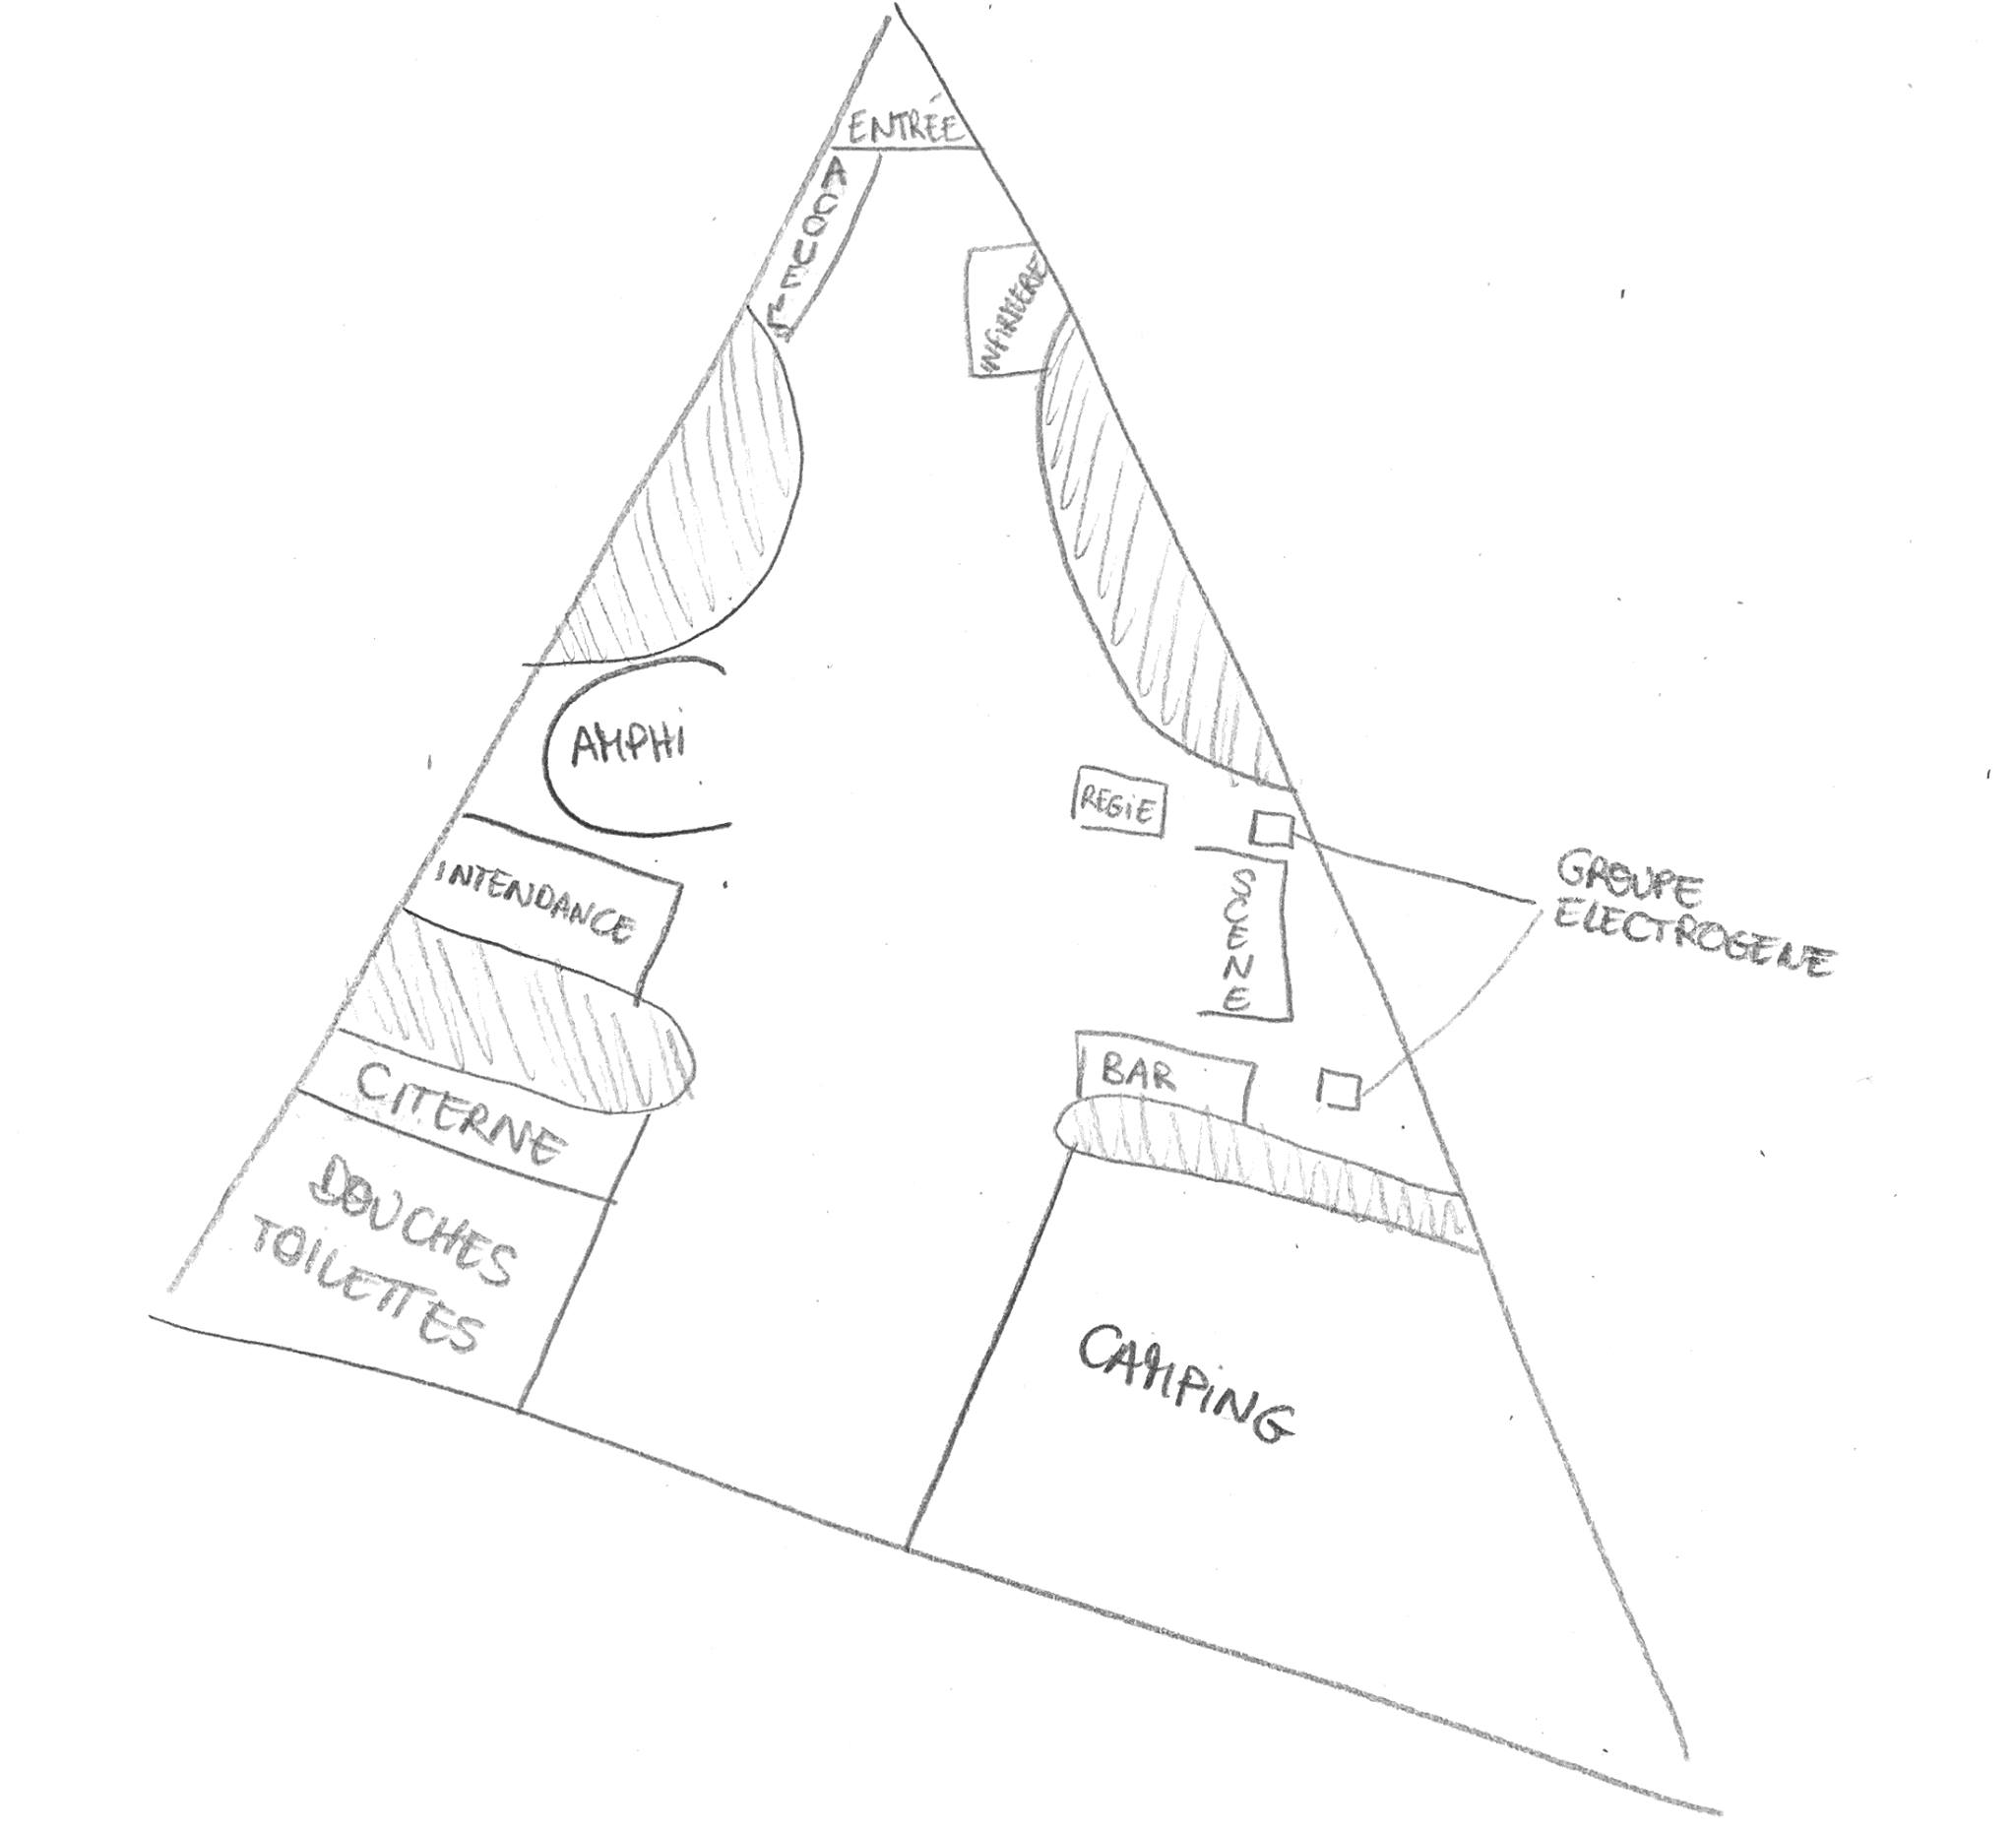 ENTRÉE
ACCUEIL
INFIRMERIE
AMPHI
REGIE
INTENDANCE
SCENE
GROUPE
ELECTROGENE
BAR
CITERNE
DOUCHES
TOILETTES
CAMPING